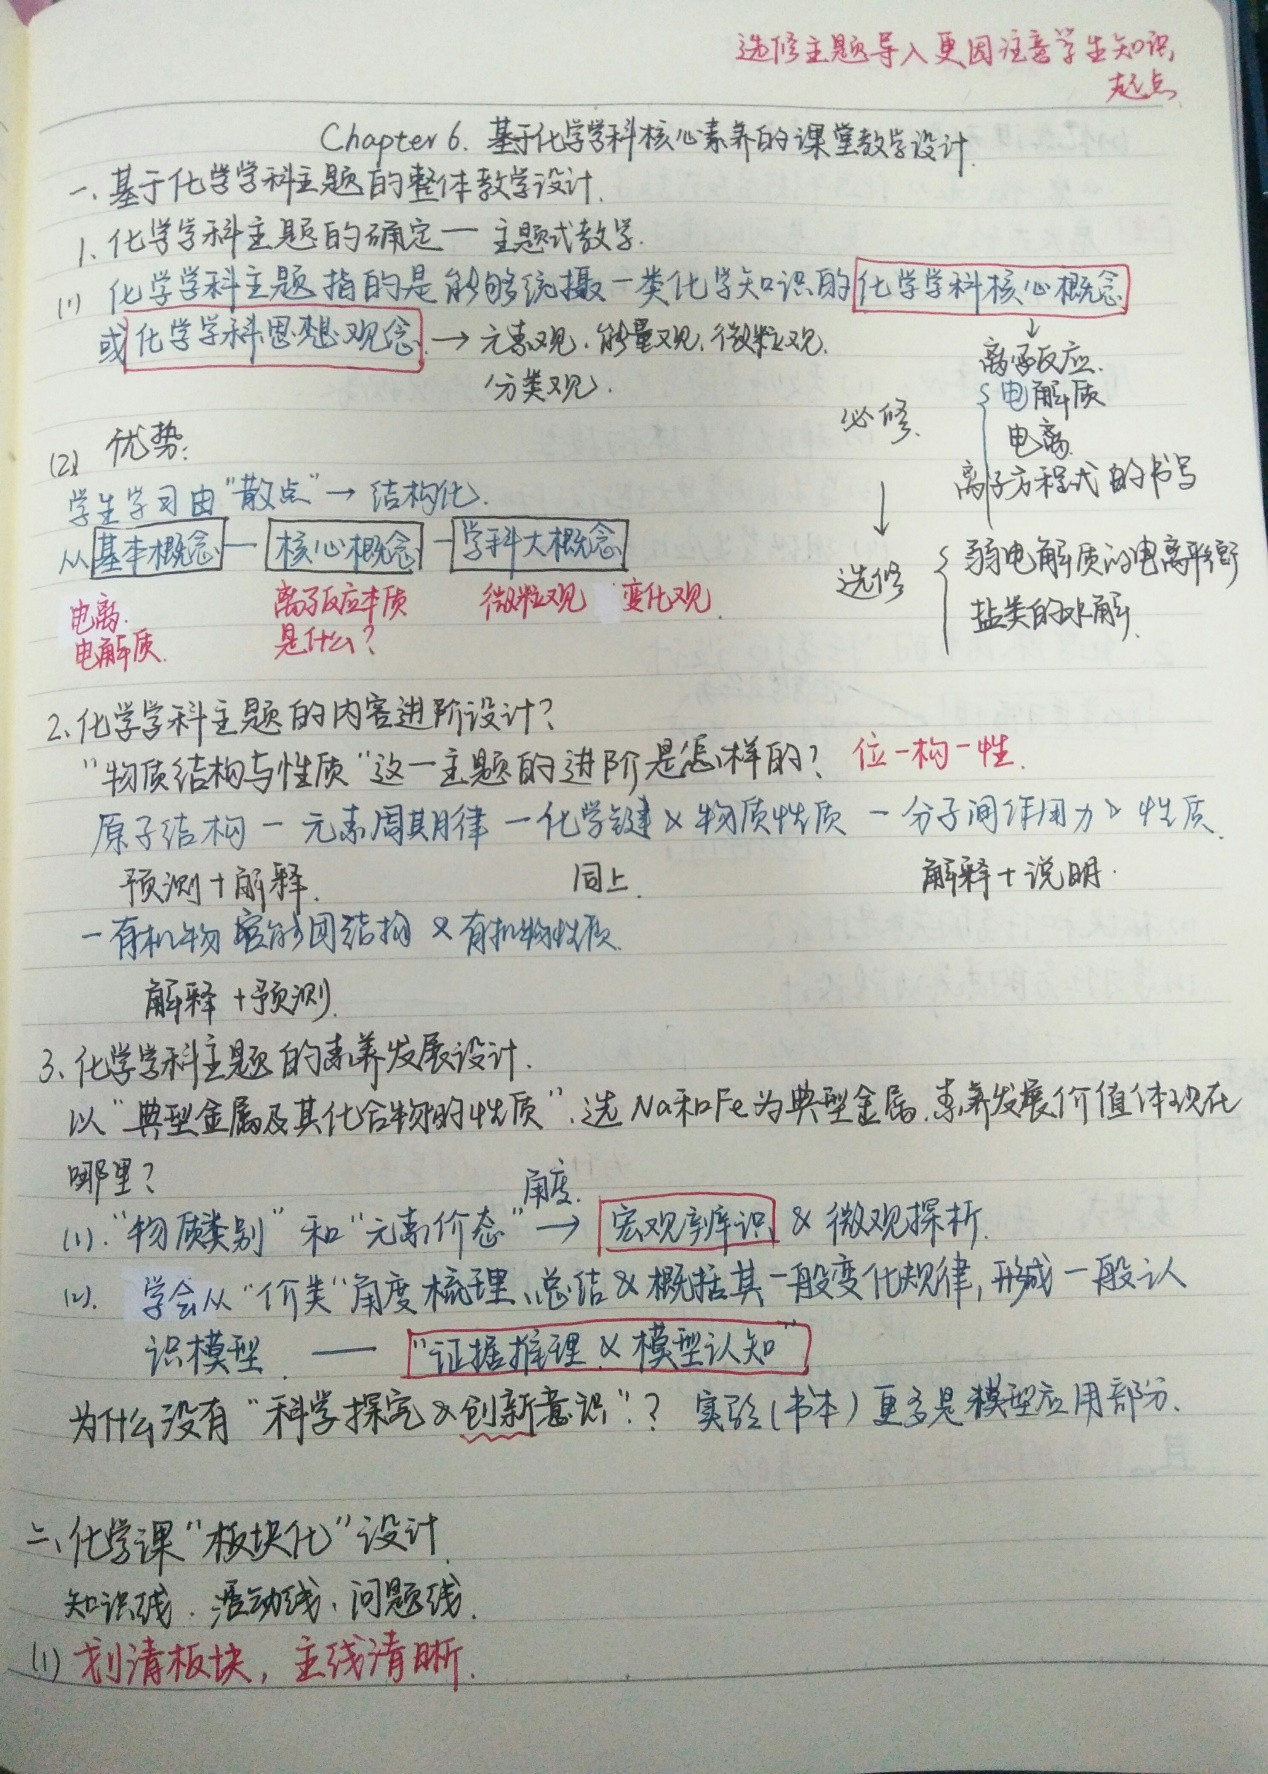 选修主题导入更因注意学生知识
起点
Chapter 6. 基于化学学科核心素养的课堂教学设计.
一、基于化学学科主题的整体教学设计.
1. 化学学科主题的确定一 主题式教学.
(1) 化学学科主题指的是能够统摄一类化学知识的化学学科核心概念
或化学学科思想观念. → 元素观、能量观、微粒观.
分类观).
↓
离子反应.
必修. 电解质
电离.
离子方程式的书写
(2) 优势:
学生学习由"散点" → 结构化.
从基本概念 — 核心概念 — 学科大概念
↓
选修 弱电解质的电离平衡
盐类的水解.
电离. 离子反应本质 微粒观 变化观.
电解质. 是什么?
2、化学学科主题的内容进阶设计?
"物质结构与性质"这一主题的进阶是怎样的? 位一构一性.
原子结构 一 元素周期律 一化学键 & 物质性质 一 分子间作用力 & 性质.
预测+解释. 同上. 解释+说明.
一有机物 官能团结构 & 有机物性质.
解释+预测.
3、化学学科主题的素养发展设计.
以"典型金属及其化合物的性质". 选Na和Fe为典型金属.素养发展价值体现在
哪里?
角度.
(1). "物质类别"和"元素价态" → 宏观辨识 & 微观探析.
(2). 学会从"价类"角度梳理、总结&概括其一般变化规律, 形成一般认
识模型. —— "证据推理 & 模型认知"
为什么没有"科学探究&创新意识"? 实验(书本)更多是模型应用部分.
二、化学课"板块化"设计.
知识线. 活动线、问题线.
(1) 划清板块, 主线清晰.